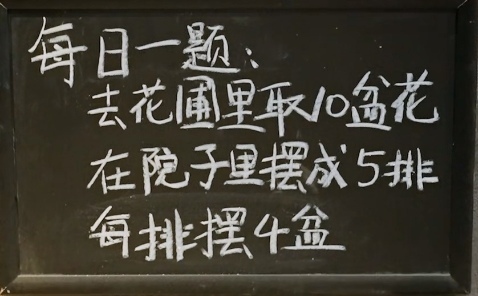 每日一题:
去花圃里取10盆花
在院子里摆成5排
每排摆4盆